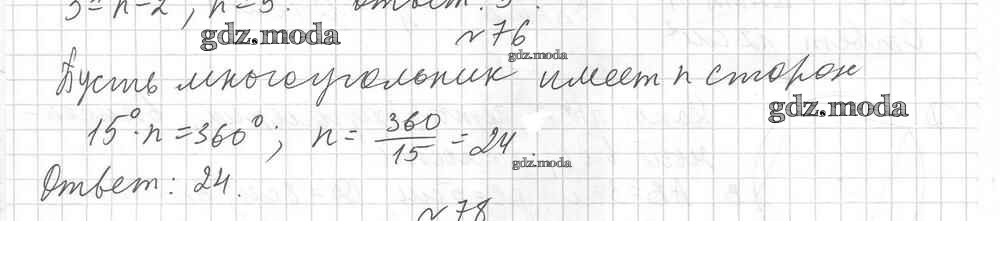 3 = n-2, n=5. Ответ: 5.
gdz.moda
№76
gdz.moda
Пусть многоугольник имеет n сторон
gdz.moda
15°·n=360°; n= 360/15 = 24
gdz.moda
Ответ: 24.
№78